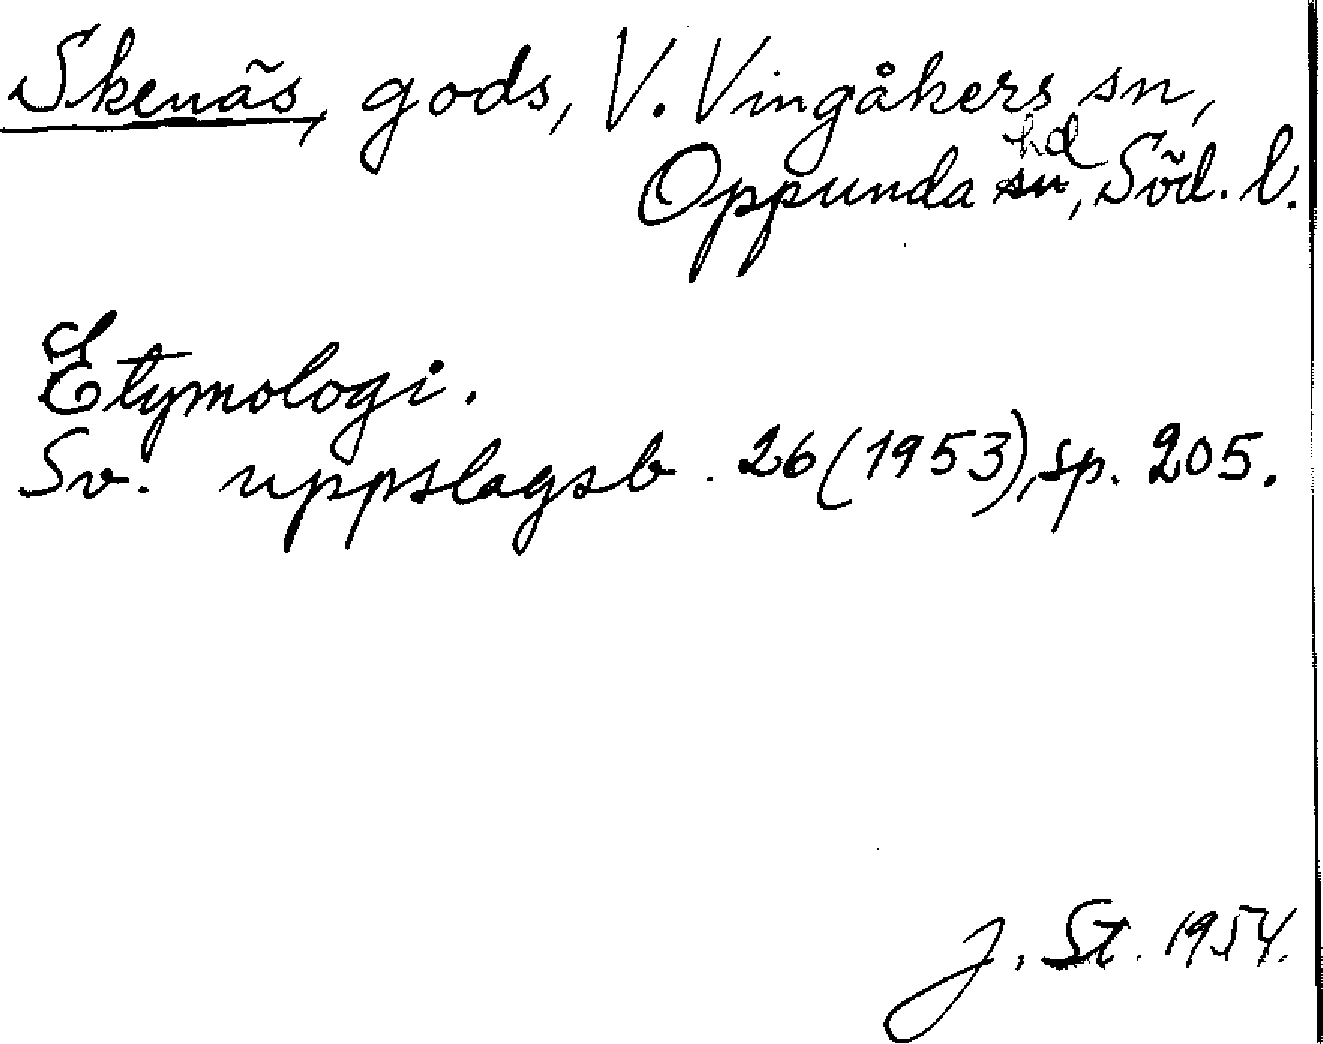 Skenäs, gods, V. Vingåkers sn,
Oppunda hd, Söd. l.
Etymologi.
Sv. uppslagsb. 26 (1953), sp. 205.
J. St. 1954.